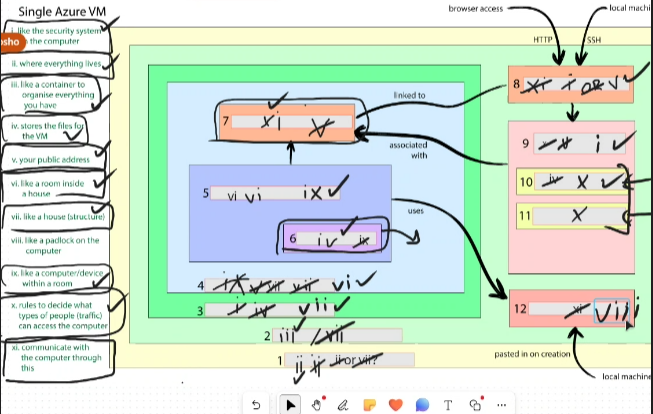 Single Azure VM
i. like the security system
the computer
osho
ii. where everything lives
iii. like a container to
organise everything
you have
iv. stores the files for
the VM
v. your public address
vi. like a room inside
a house
vii. like a house (structure)
viii. like a padlock on the
computer
ix. like a computer/device
within a room
x. rules to decide what
types of people (traffic)
can access the computer
xi. communicate with
the computer through
this
browser access
local machi
HTTP
SSH
linked to
associated
with
uses
7 xi v
8 xi i or v
9 x i
10 iv x
11 x
5 vi vi ix
6 iv ix
4 ix vii vii vi
3 i iv vii
2 iii vii
1 ii ii ii or vii?
12 xi viii
pasted in on creation
local machine
T